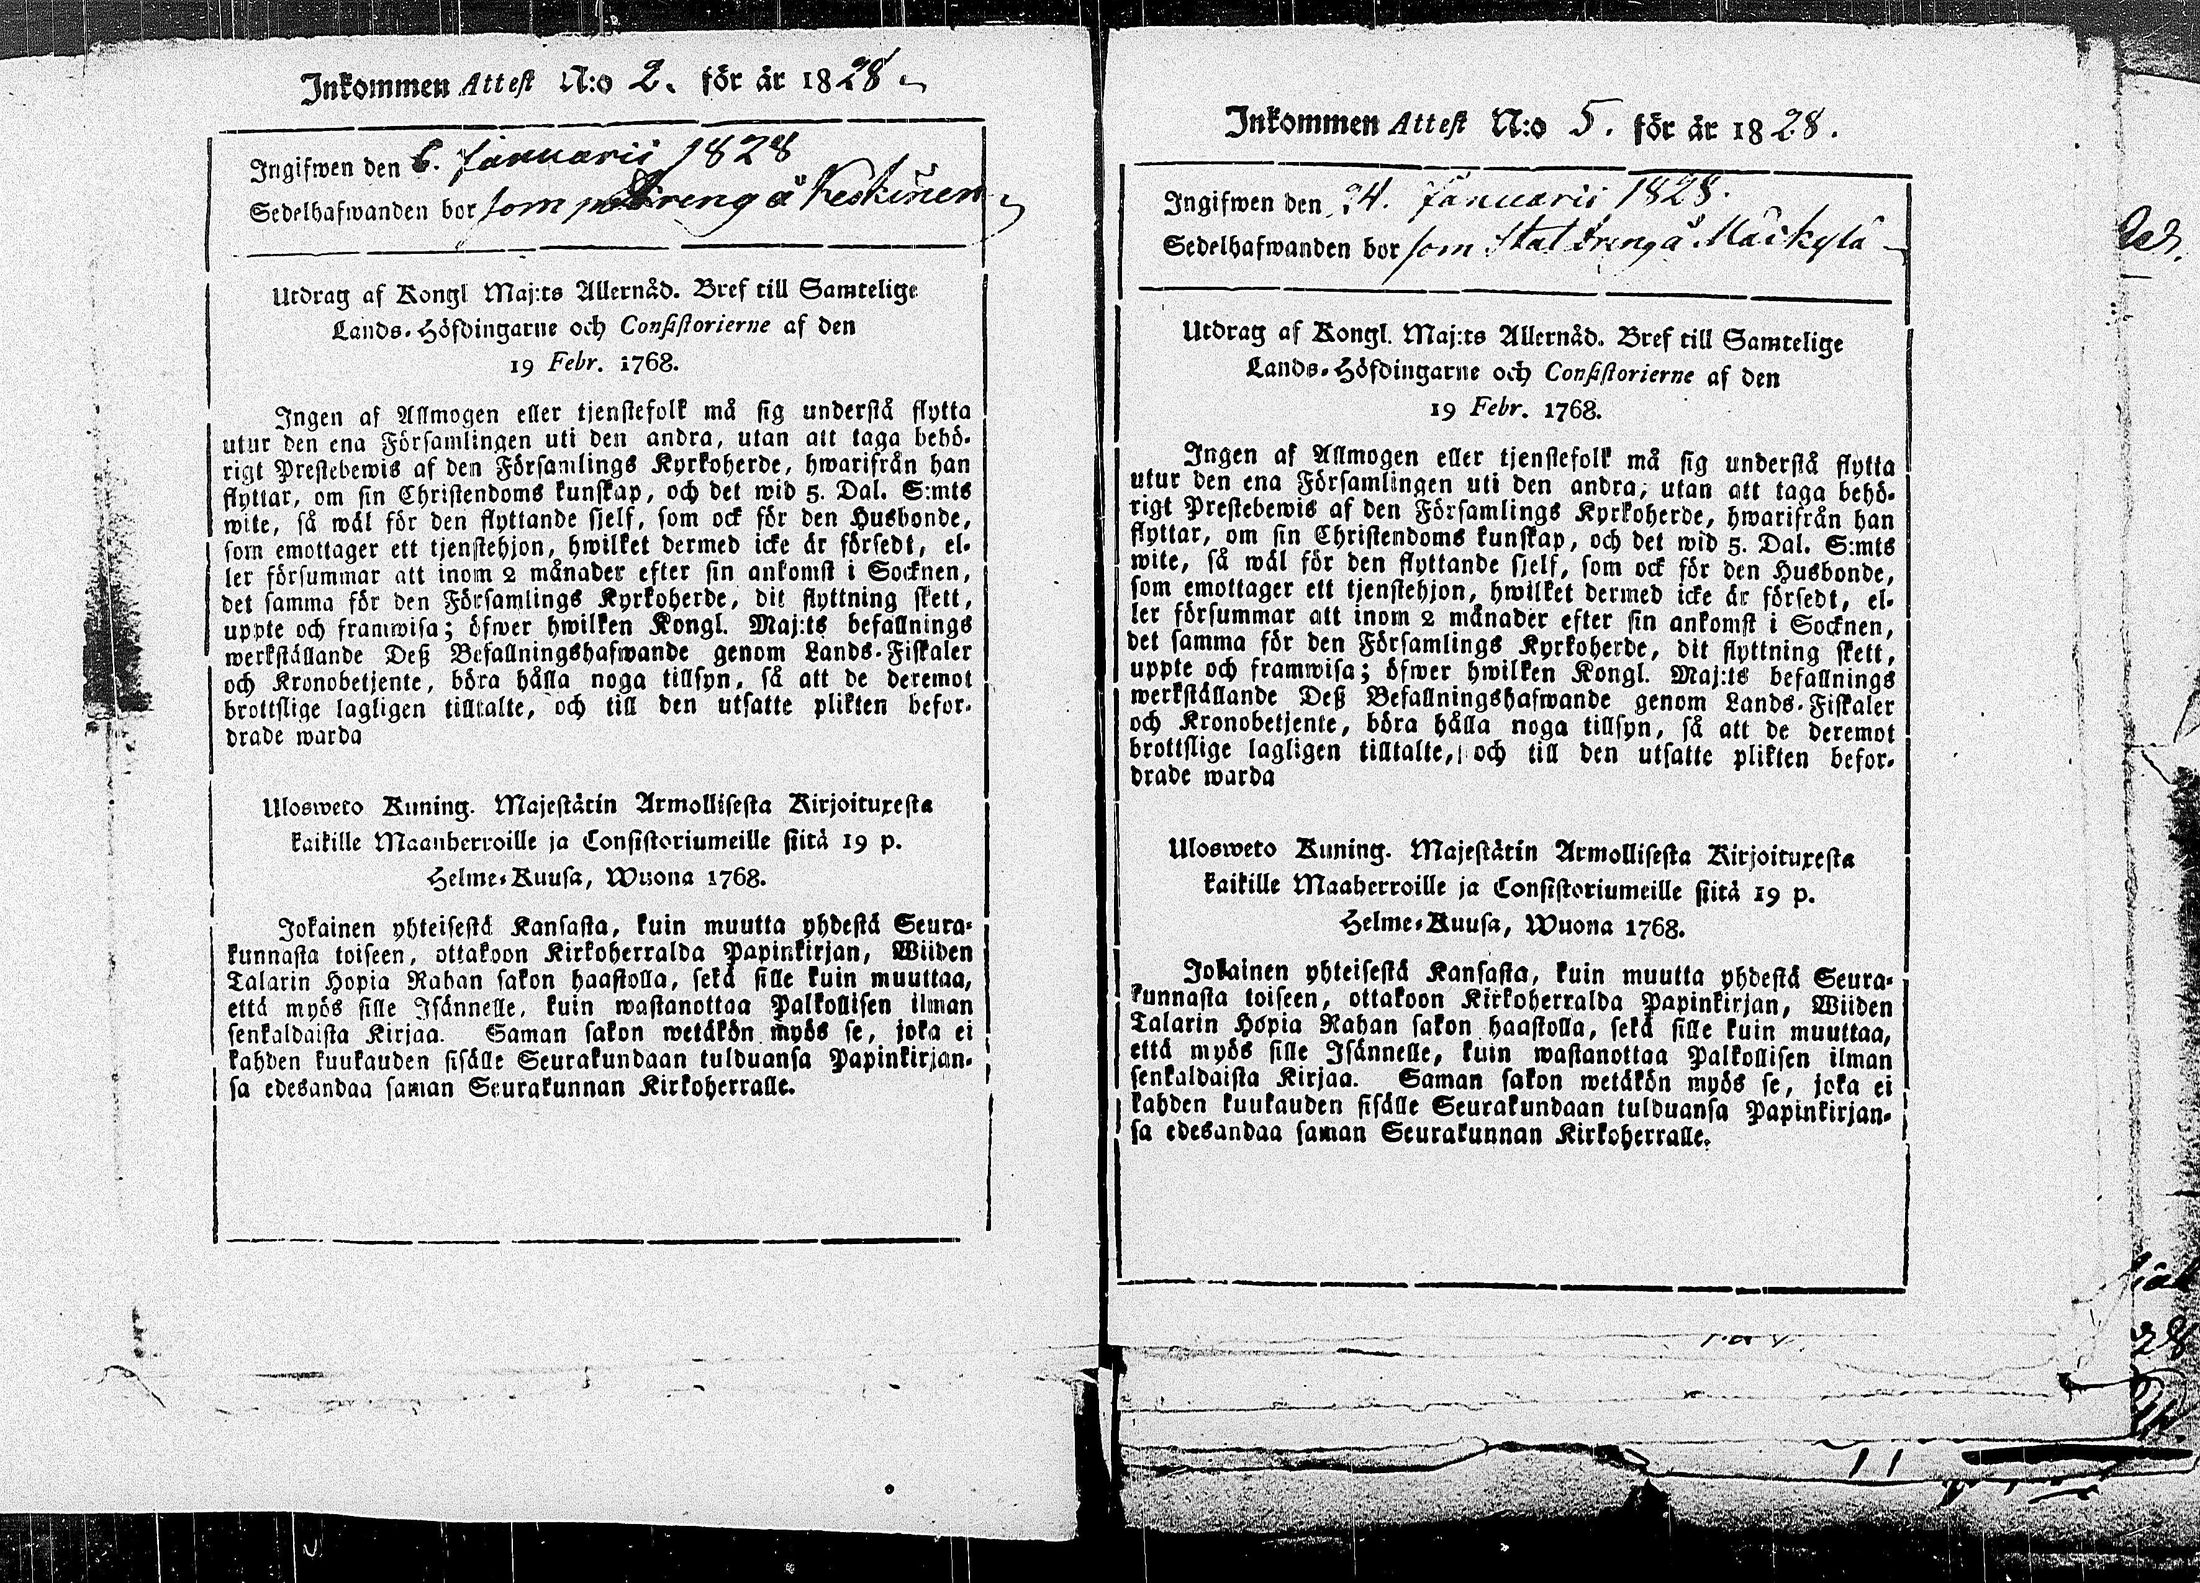 Inkommen Attest N:o 2. för år 1828
Ingifwen den 6. Januarii 1828
Sedelhafwanden bor som dreng å Keskinen
Utdrag af Kongl Maj:ts Allernåd. Bref till Samtelige
Lands-Höfdingarne och Consistorierne af den
19 Febr. 1768.
Ingen af Allmogen eller tjenstefolk må sig understå flytta
utur den ena Församlingen uti den andra, utan att taga behö-
rigt Prestebewis af den Församlings Kyrkoherde, hwarifrån han
flyttar, om sin Christendoms kunskap, och det wid 5. Dal. S:mts
wite, så wäl för den flyttande sjelf, som ock för den Husbonde,
som emottager ett tjenstehjon, hwilket dermed icke är försedt, el-
ler försummar att inom 2 månader efter sin ankomst i Socknen,
det samma för den Församlings Kyrkoherde, dit flyttning skett,
uppte och framwisa; öfwer hwilken Kongl. Maj:ts befallnings
werkställande Deß Befallningshafwande genom Lands-Fiskaler
och Kronobetjente, böra hålla noga tillsyn, så att de deremot
brottslige lagligen tilltalte, och till den utsatte plikten befor-
drade warda
Ulosweto Kuning. Majestätin Armollisesta Kirjoituxesta
kaikille Maanherroille ja Consistoriumeille siitä 19 p.
Helme-Kuusa, Wuona 1768.
Jokainen yhteisestä Kansasta, kuin muutta yhdestä Seura-
kunnasta toiseen, ottakoon Kirkoherralda Papinkirjan, Wiiden
Talarin Hopia Rahan sakon haastolla, sekä sille kuin muuttaa,
että myös sille Isännelle, kuin wastanottaa Palkollisen ilman
senkaldaista Kirjaa. Saman sakon wetäkön myös se, joka ei
kahden kuukauden sisälle Seurakundaan tulduansa Papinkirjan-
sa edesandaa saman Seurakunnan Kirkoherralle.
Inkommen Attest N:o 5. för år 1828.
Ingifwen den 24. Januarii 1828.
Sedelhafwanden bor som Statdreng å Mäckylä
Utdrag af Kongl. Maj:ts Allernåd. Bref till Samtelige
Lands-Höfdingarne och Consistorierne af den
19 Febr. 1768.
Ingen af Allmogen eller tjenstefolk må sig understå flytta
utur den ena Församlingen uti den andra, utan att taga behö-
rigt Prestebewis af den Församlings Kyrkoherde, hwarifrån han
flyttar, om sin Christendoms kunskap, och det wid 5. Dal. S:mts
wite, så wäl för den flyttande sjelf, som ock för den Husbonde,
som emottager ett tjenstehjon, hwilket dermed icke är försedt, el-
ler försummar att inom 2 månader efter sin ankomst i Socknen,
det samma för den Församlings Kyrkoherde, dit flyttning skett,
uppte och framwisa; öfwer hwilken Kongl. Maj:ts befallnings
werkställande Deß Befallningshafwande genom Lands-Fiskaler
och Kronobetjente, böra hålla noga tillsyn, så att de deremot
brottslige lagligen tilltalte, och till den utsatte plikten befor-
drade warda
Ulosweto Kuning. Majestätin Armollisesta Kirjoituxesta
kaikille Maaherroille ja Consistoriumeille siitä 19 p.
Helme-Kuusa, Wuona 1768.
Jokainen yhteisestä Kansasta, kuin muutta yhdestä Seura-
kunnasta toiseen, ottakoon Kirkoherralda Papinkirjan, Wiiden
Talarin Hopia Rahan sakon haastolla, sekä sille kuin muuttaa,
että myös sille Isännelle, kuin wastanottaa Palkollisen ilman
senkaldaista Kirjaa. Saman sakon wetäkön myös se, joka ei
kahden kuukauden sisälle Seurakundaan tulduansa Papinkirjan-
sa edesandaa saman Seurakunnan Kirkoherralle.